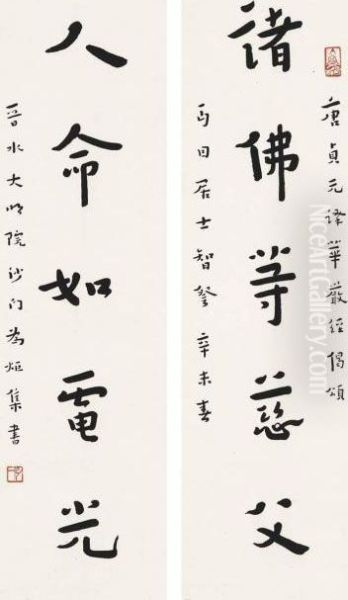 唐貞元譯華嚴經偈頌
諸佛等慈父
日居士智辛未春
人命如電光
晉水大明院沙門為炬集書
NiceArtGallery.com